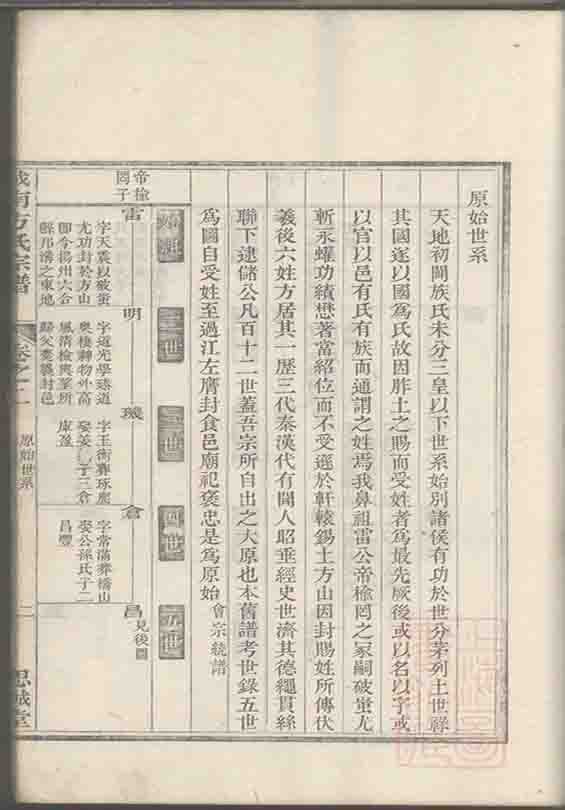 原始世系
天地初闢族氏未分三皇以下世系始別諸侯有功於世分茅列土世祥
其國遂以國為氏故因胙土之賜而受姓者為最先厥後或以名以字或
以官以邑有氏有族而通謂之姓焉我鼻祖雷公帝榆罔之冢嗣破蚩尤
斬永蠷功績懋著富紹位而不受遜於軒轅錫土方山因封賜姓所傳伏
義後六姓方居其一歷三代秦漢代有聞人昭垂經史世濟其德繩貫絲
聯下逮儲公凡百十二世蓋吾宗所自出之大原也本舊譜考世錄五世
為圖自受姓至過江左膺封食邑廟祀褒忠是為原始
會宗統譜
始祖
二世
三世
四世
五世
帝榆
罔子
雷
字天震以破蚩
尤功封於方山
即今揚州六合
縣邦溝之東地
明
字道光學臻道
奧棲神物外高
風清檢興羣所
歸父老襲封邑
倉
字常滿葬橋山
娶公孫氏子二
昌豐
昌
見後圖
南方氏宗譜
卷之二
原始世系
二
思誠堂